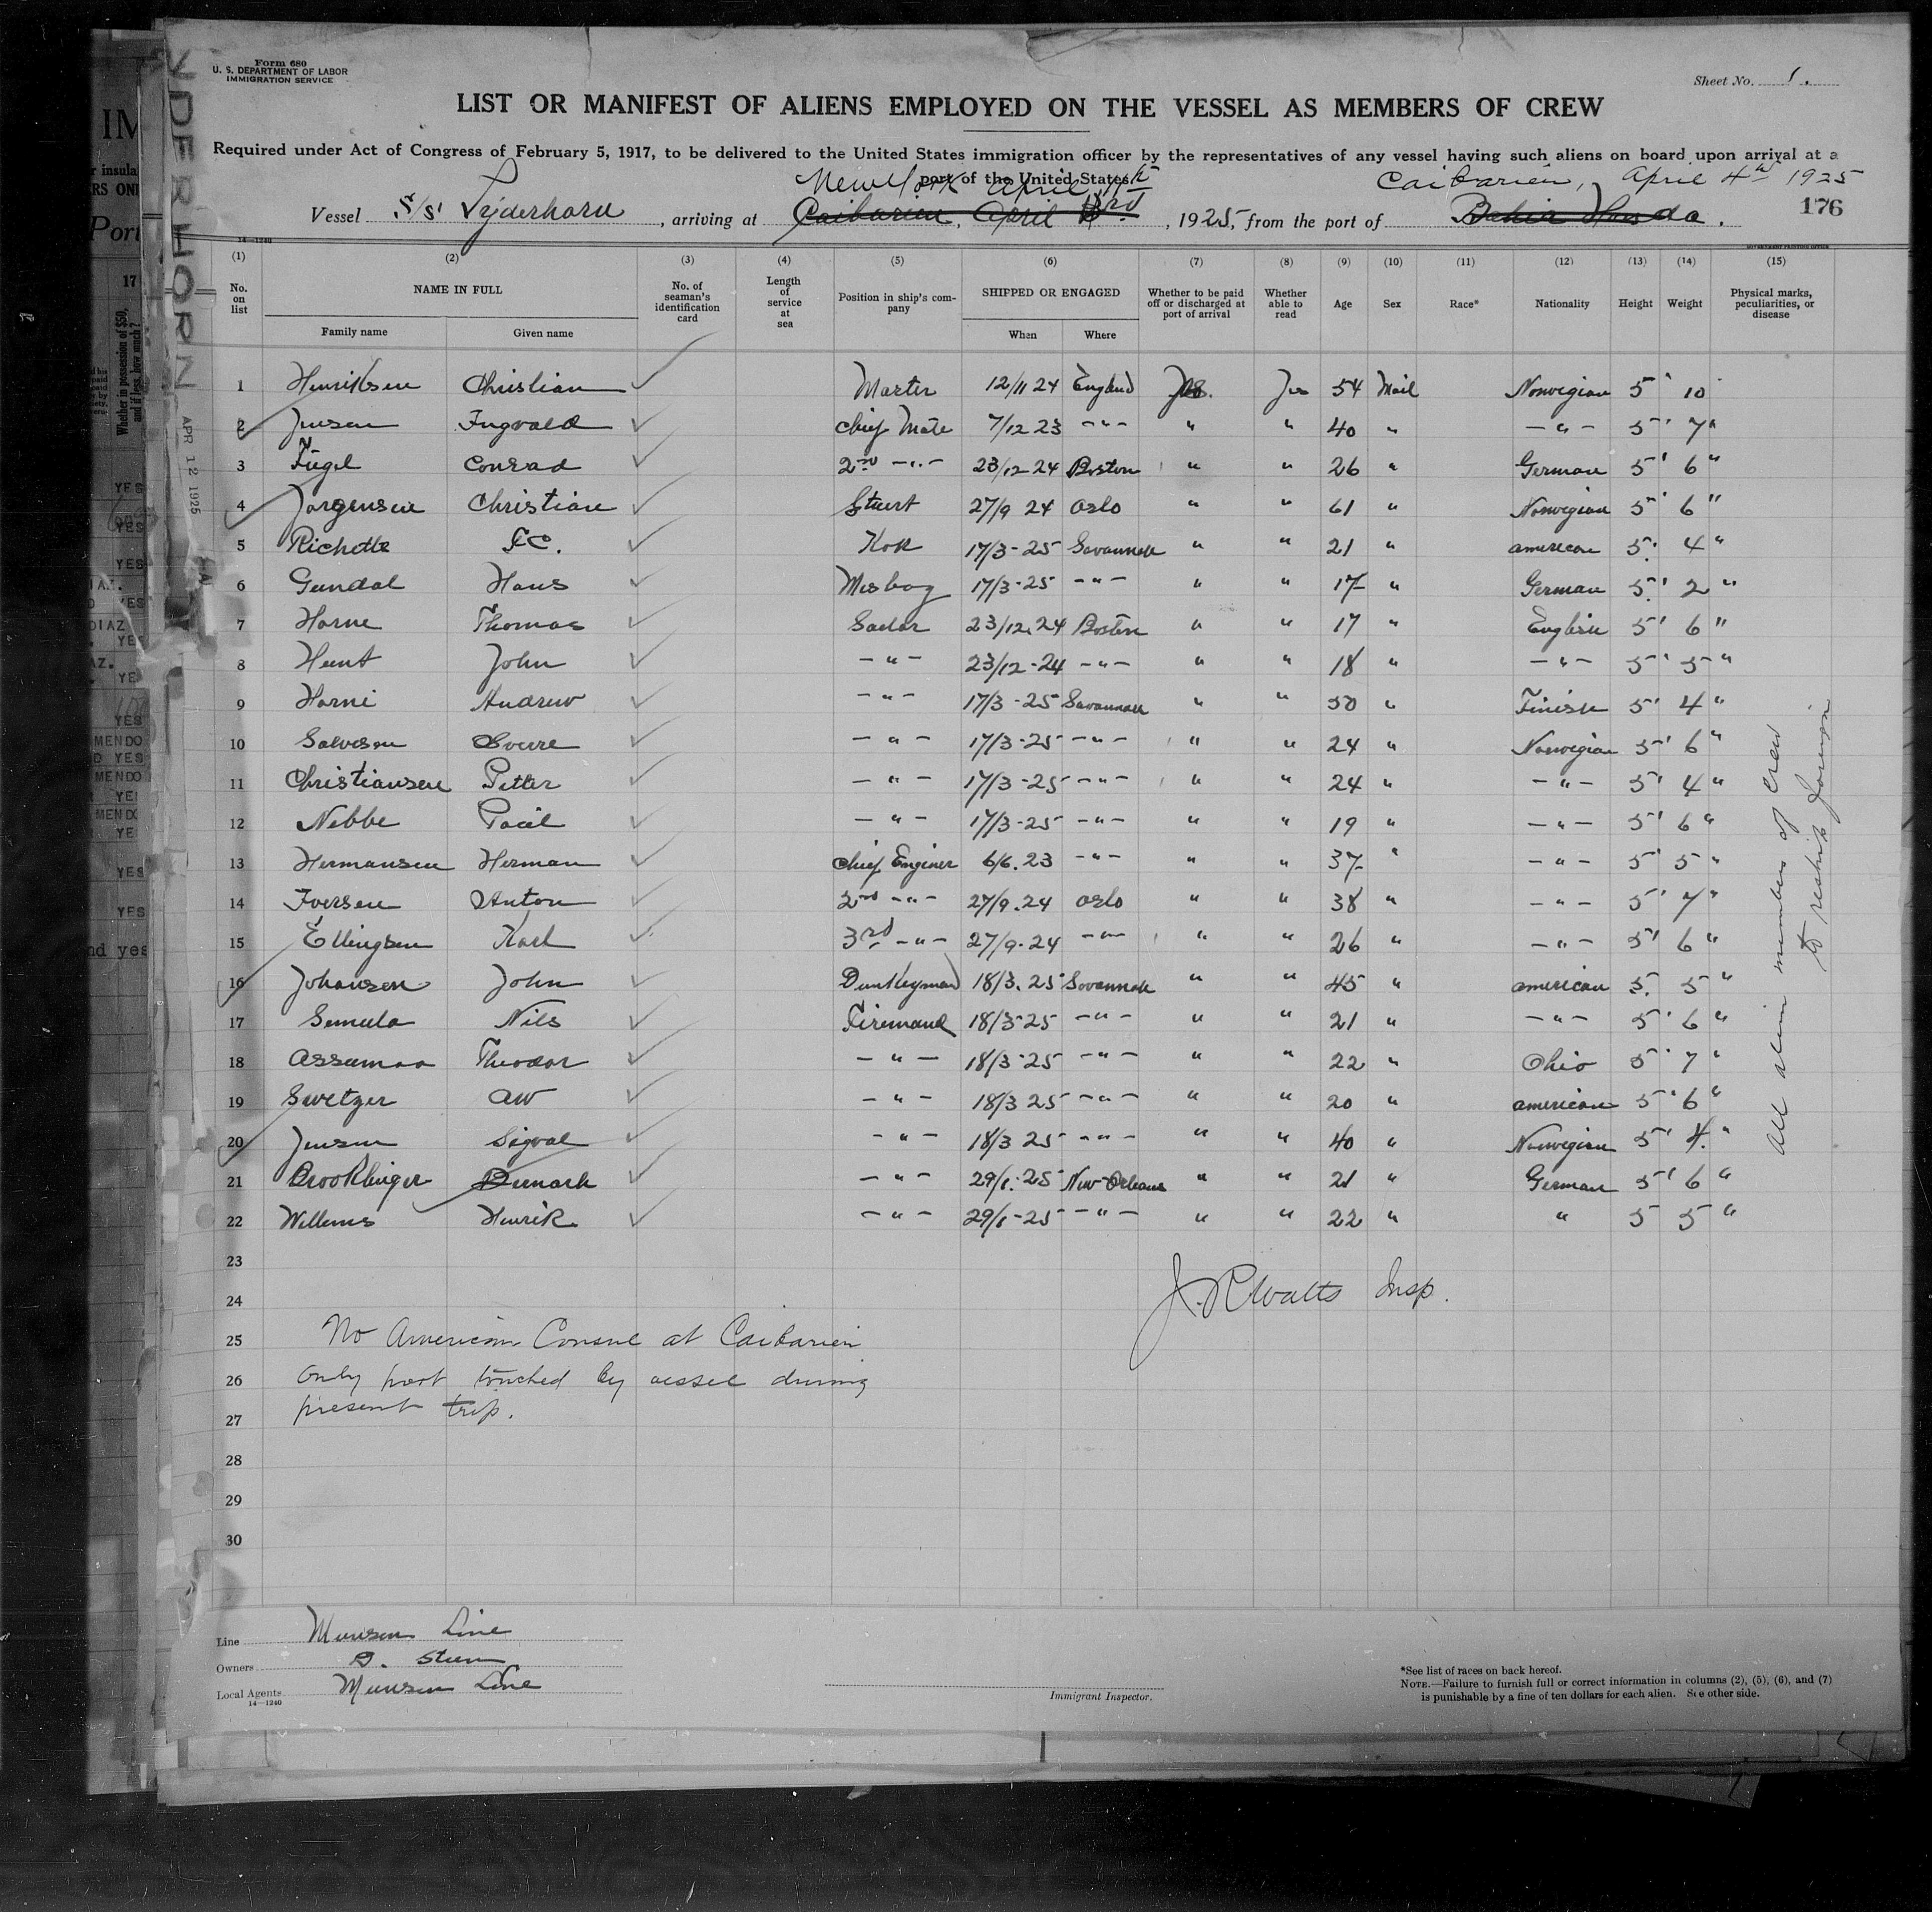 Form 680
U. S. DEPARTMENT OF LABOR
IMMIGRATION SERVICE
Sheet No. 1.
LIST OR MANIFEST OF ALIENS EMPLOYED ON THE VESSEL AS MEMBERS OF CREW
Required under Act of Congress of February 5, 1917, to be delivered to the United States immigration officer by the representatives of any vessel having such aliens on board upon arrival at a
port of the United States
New York April Caibarien, April 4th 1925
Vessel S/S , arriving at Caibarien, April , 1925, from the port of Bahia Honda.
176
14—1240
(1) (2) (3) (4) (5) (6) (7) (8) (9) (10) (11) (12) (13) (14) (15)
No. on list NAME IN FULL Family name Given name No. of seaman's identification card Length of service at sea Position in ship's company SHIPPED OR ENGAGED When Where Whether to be paid off or discharged at port of arrival Whether able to read Age Sex Race* Nationality Height Weight Physical marks, peculiarities, or disease
1 Henriksen Christian Master 12/11 24 England Yes 54 Mail Norwegian 5' 10
2 Jensen Ingvald Chief Mate 7/12 23 -"- " " 40 " -"- 5' 7"
3 Fügel Conrad 2nd -"- 23/12 24 Boston " " 26 " German 5' 6"
4 Jorgensen Christian Stuert 27/9 24 Oslo " " 61 " Norwegian 5' 6"
5 Richette Kok 17/3-25 Savannah " " 21 " american 5' 4"
6 Gundal Hans Mesboy 17/3-25 -"- " " 17 " German 5' 2"
7 Horne Thomas Saelor 23/12.24 Boston " " 17 " English 5' 6"
8 Hunt John -"- 23/12-24 -"- " " 18 " -"- 5' 5"
9 Horni Andrew -"- 17/3-25 Savannah " " 50 " Finish 5' 4"
10 Salvesen Sverre -"- 17/3-25 -"- " " 24 " Norwegian 5' 6"
11 Christiansen Petter -"- 17/3-25 -"- " " 24 " -"- 5' 4"
12 Nebbe Paul -"- 17/3-25 -"- " " 19 " -"- 5' 6"
13 Hermansen Herman Chief Enginer 6/6.23 -"- " " 37 " -"- 5' 5"
14 Iversen Anton 2nd -"- 27/9.24 Oslo " " 38 " -"- 5' 7"
15 Ellingsen Karl 3rd -"- 27/9.24 -"- " " 26 " -"- 5' 6"
16 Johansen John Dunkeyman 18/3.25 Savannah " " 45 " american 5' 5"
17 Nils Firemand 18/3-25 -"- " " 21 " -"- 5' 6"
18 Theodor -"- 18/3-25 -"- " " 22 " Ohio 5' 7"
19 Swetzer AW -"- 18/3 25 -"- " " 20 " american 5' 6"
20 Jensen Sigval -"- 18/3 25 -"- " " 40 " Norwegian 5' 4"
21 -"- 29/1-25 New-Orleans " " 21 " German 5' 6"
22 Willems Henrik -"- 29/1-25 -"- " " 22 " " 5 5"
23
24
25
26
27
28
29
30
All alien members of crew
to reship foreign
Insp.
No American Consul at Caibarien
only port touched by vessel during
present trip.
Line Munson Line
Owners B. Steen
Local Agents Munson Line
14—1240
Immigrant Inspector.
*See list of races on back hereof.
NOTE.—Failure to furnish full or correct information in columns (2), (5), (6), and (7)
is punishable by a fine of ten dollars for each alien. See other side.
APR 12 1925